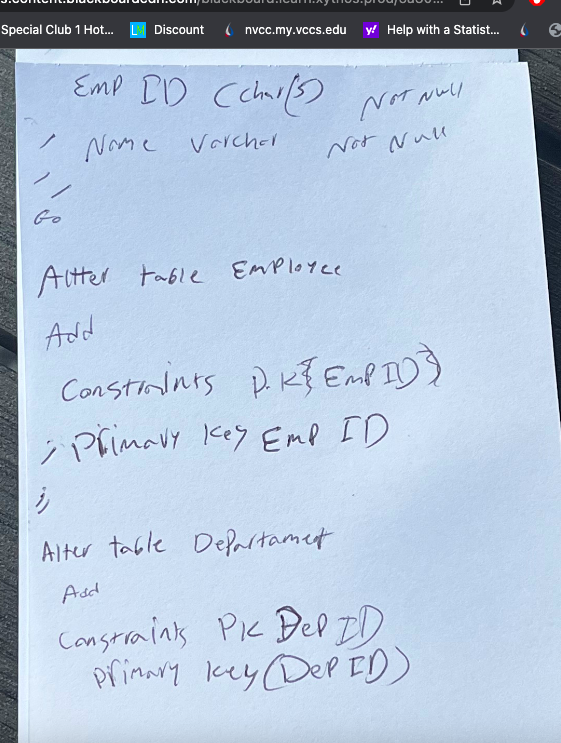 s.content.blackboardcdn.com/blackboard.learn.xythos.prod/
Special Club 1 Hot... LM Discount nvcc.my.vccs.edu y! Help with a Statist...
Emp ID (char(5) Not Null
, Name Varchar Not Null
,
,
Go
Altter table Employee
Add
Constraints P.K{EmpID}
; Primary Key Emp ID
;
Alter table Departament
Add
Constraints PK DepID
primary key(Dep ID)